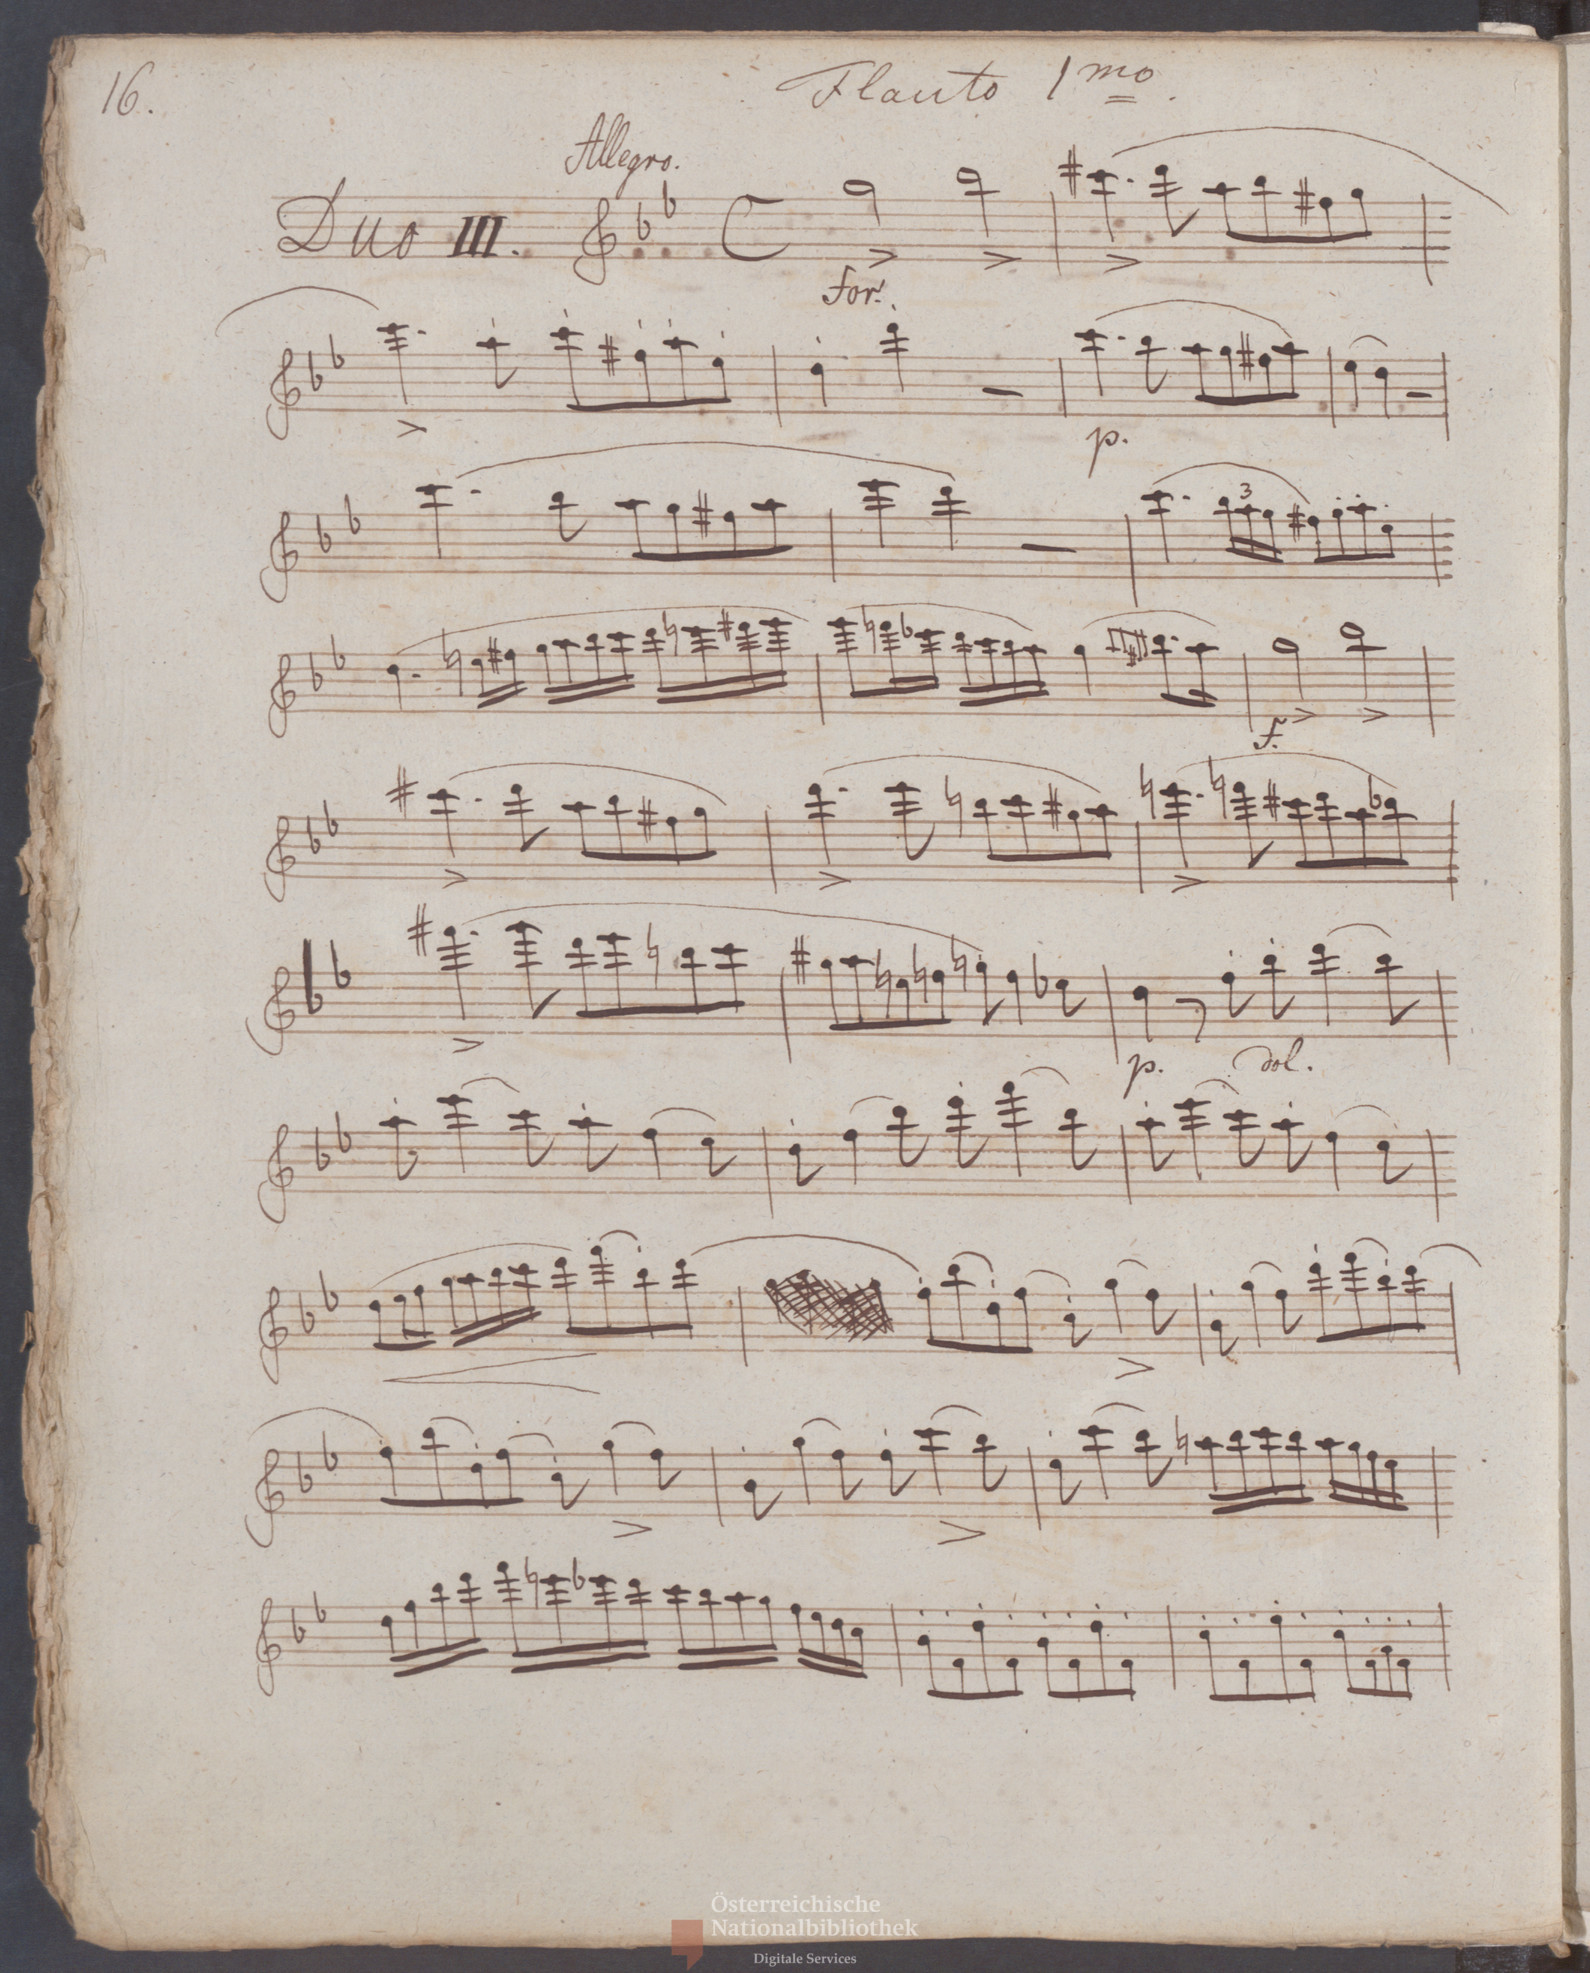 16.
Flauto 1mo.
Allegro.
Duo III.
For:
p.
3
f.
p. dol.
Österreichische
Nationalbibliothek
Digitale Services